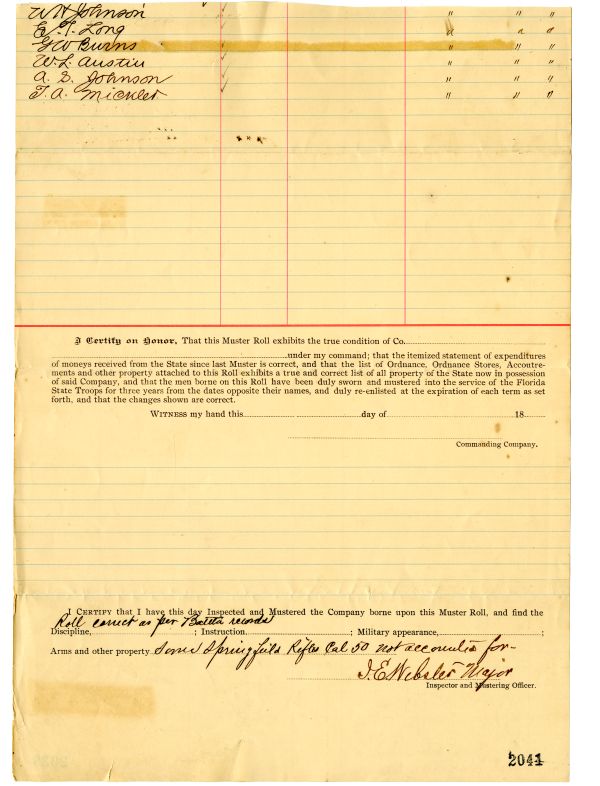 W H Johnson " " "
E. T. Long " " "
G W Burns " " "
W. L. Austin " " "
A. E. Johnson " " "
T. A. Mickler " " "
I Certify on Honor, That this Muster Roll exhibits the true condition of Co.
under my command; that the itemized statement of expenditures
of moneys received from the State since last Muster is correct, and that the list of Ordnance, Ordnance Stores, Accoutre-
ments and other property attached to this Roll exhibits a true and correct list of all property of the State now in possession
of said Company, and that the men borne on this Roll have been duly sworn and mustered into the service of the Florida
State Troops for three years from the dates opposite their names, and duly re-enlisted at the expiration of each term as set
forth, and that the changes shown are correct.
WITNESS my hand this day of 18
Commanding Company.
I CERTIFY that I have this day Inspected and Mustered the Company borne upon this Muster Roll, and find the
Roll correct as per records
Discipline, ; Instruction ; Military appearance, ;
Arms and other property Some Springfield Rifles Cal 50 not accounted for-
J. E. Webster Major
Inspector and Mustering Officer.
2041